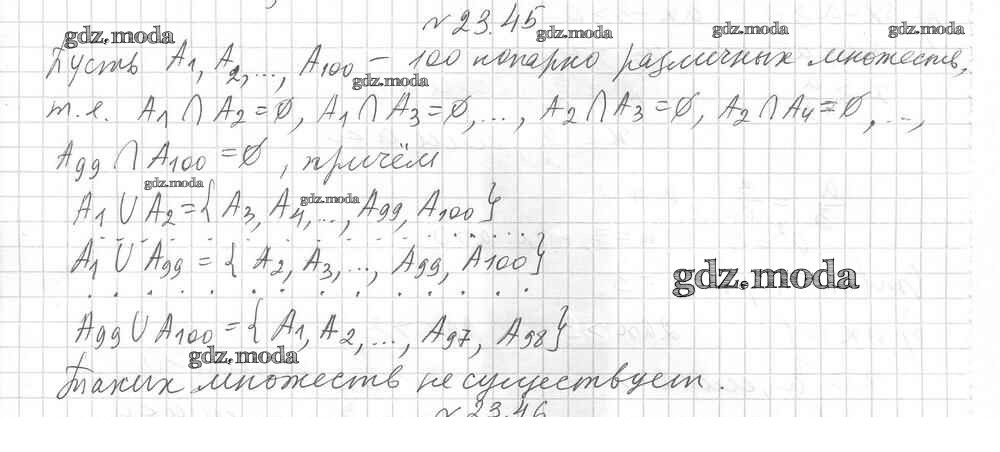 № 23.45
gdz.moda gdz.moda gdz.moda gdz.moda
Пусть A1, A2, ..., A100 – 100 попарно различных множеств,
gdz.moda
т.е. A1 ∩ A2 = ∅, A1 ∩ A3 = ∅, ..., A2 ∩ A3 = ∅, A2 ∩ A4 = ∅, ...,
A99 ∩ A100 = ∅, причём
gdz.moda
A1 ∪ A2 = { A3, A4, ..., A99, A100 }
gdz.moda
A1 ∪ A99 = { A2, A3, ..., A99, A100 }
gdz.moda
A99 ∪ A100 = { A1, A2, ..., A97, A98 }
gdz.moda
Таких множеств не существует.
№ 23.46